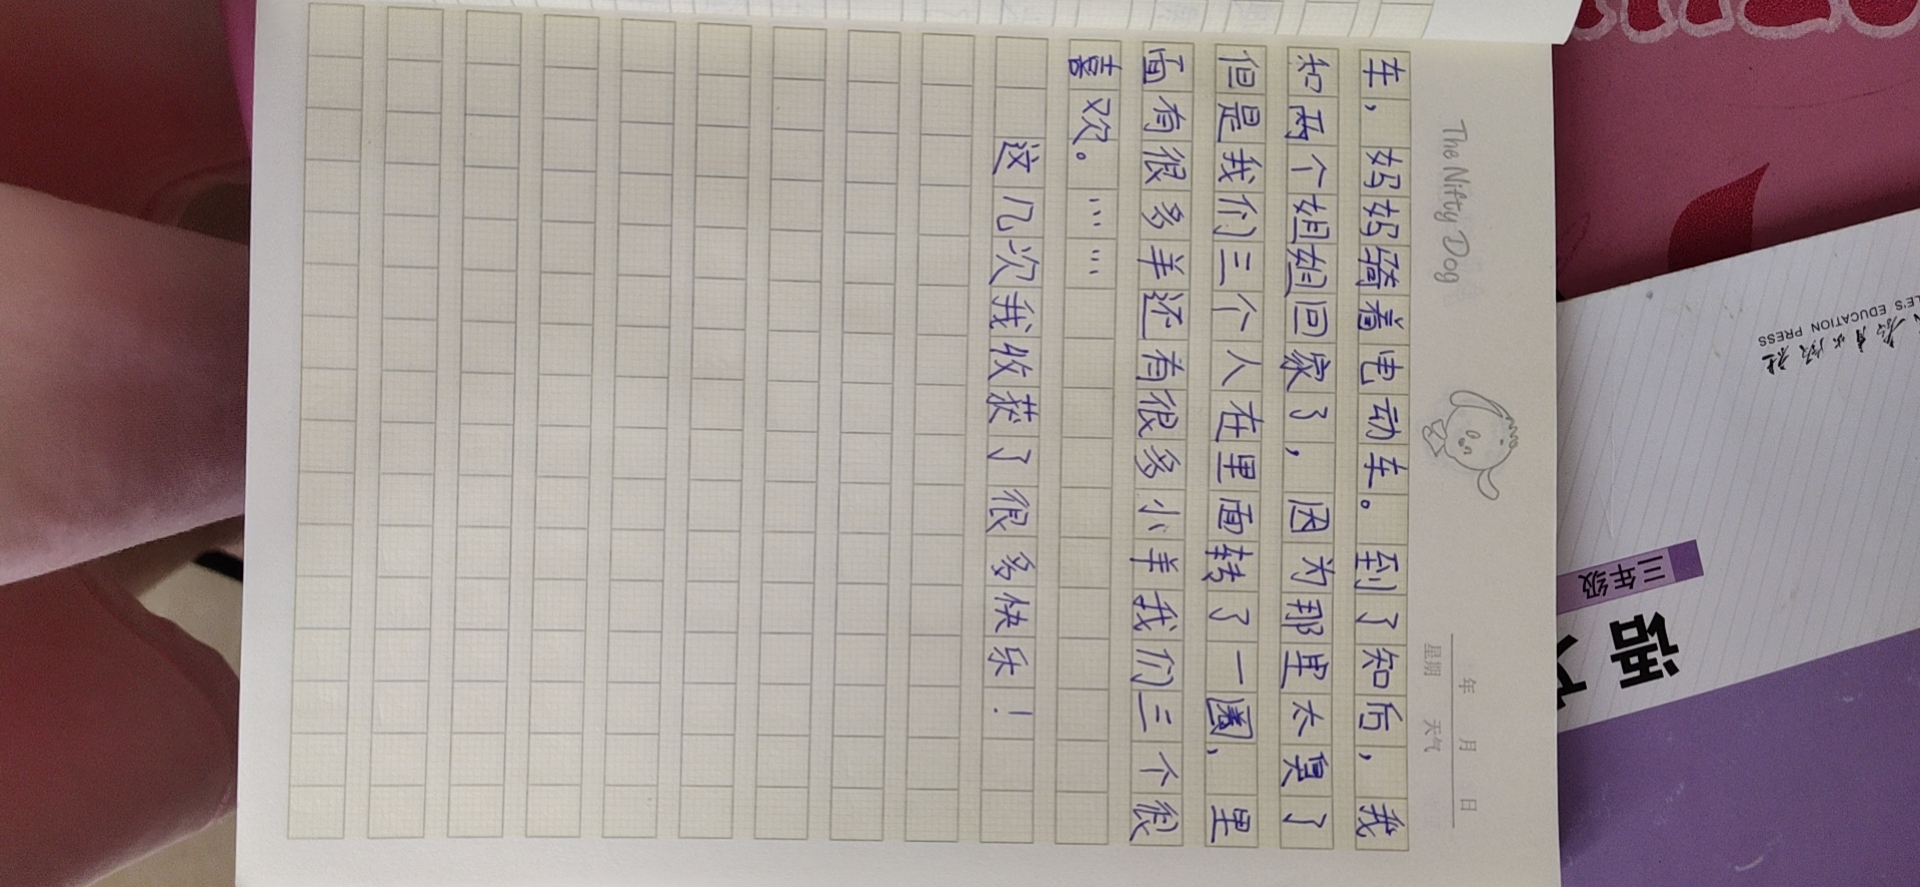 The Nifty Dog
年 月 日
星期 天气
车，妈妈骑着电动车。到了知后，我
和两个姐姐回家了，因为那里太臭了
但是我们三个人在里面转了一圈，里
面有很多羊还有很多小羊我们三个很
喜欢。……
这几次我收获了很多快乐！
LE'S EDUCATION PRESS
三年级
语文